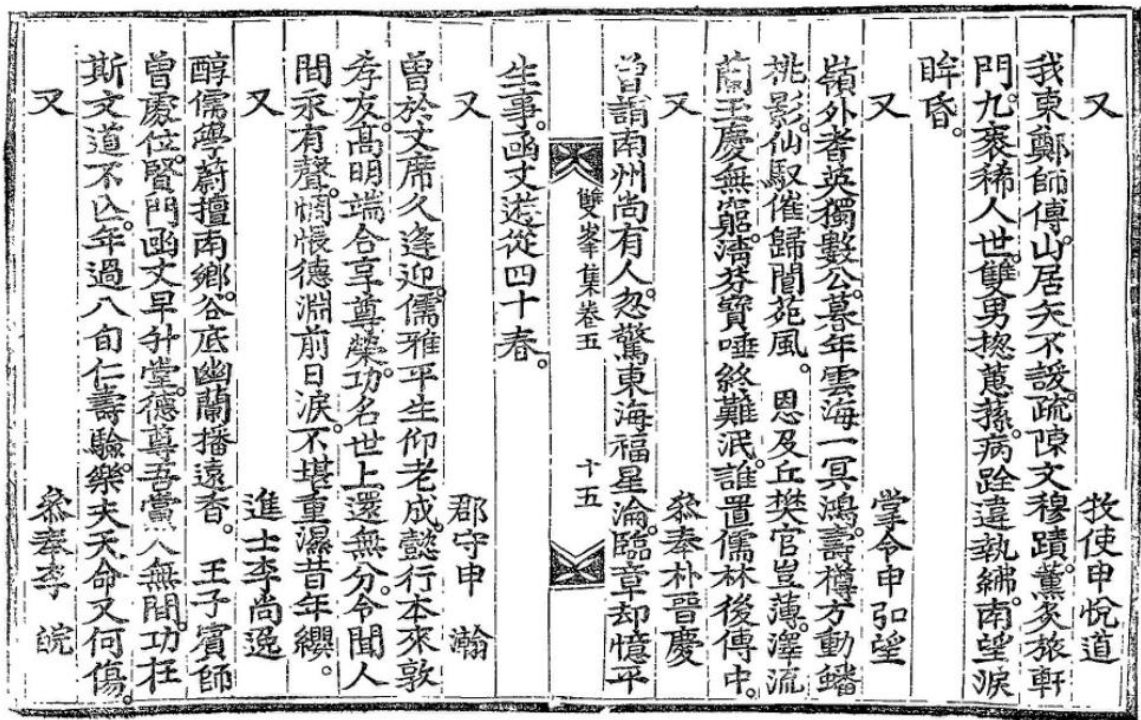 又 牧使申悅道
我東鄭師傅。山居矢不諼。疏陳文穆蹟。薰炙旅軒
門。九袠稀人世。雙男摠蕙蓀。病跧違執紼。南望淚
眸昏。
又 掌令申弘望
嶺外耆英獨數公。暮年雲海一冥鴻。壽樽方動蟠
桃影。仙馭催歸閬苑風。 恩及丘樊官豈薄。澤流
蘭玉慶無窮。淸芬寶唾終難泯。誰置儒林後傳中。
又 叅奉朴晉慶
曾謂南州尙有人。忽驚東海福星淪。臨章却憶平
雙峯集卷五 十五
生事。函丈遊從四十春。
又 郡守申 瀚
曾於文席久逢迎。儒雅平生仰老成。懿行本來敦
孝友。高明端合享尊榮。功名世上還無分。令聞人
間永有聲。惆悵德淵前日淚。不堪重濕昔年纓。
又 進士李尙逸
醇儒學蔚擅南鄕。谷底幽蘭播遠香。 王子賓師
曾處位。賢門函丈早升堂。德尊吾黨人無間。功在
斯文道不亾。年過八旬仁壽驗。樂夫天命又何傷。
又 叅奉李 皖